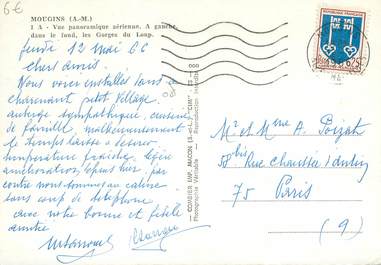 6€
MOUGINS (A.-M.)
1 A - Vue panoramique aérienne. A gauche,
dans le fond, les Gorges du Loup.
12 mai 66
Chers amis
Nous voici installés dans ce
charmant petit village
auberge sympathique, cuisine
de famille, malheureusement
le temps laisse à désirer
température fraîche. Légère
amélioration depuis hier, par
contre nous sommes au calme
sans coup de téléphone
avec notre bonne et fidèle
amitié
COMBIER IMP. MACON (S.-et-L.) "CIM"
Photographie Véritable - Reproduction Interdite
REPUBLIQUE FRANÇAISE
0,25
M. et Mme A. Poizat
58 bis Rue Chaussée d'Antin
75 Paris
(9)